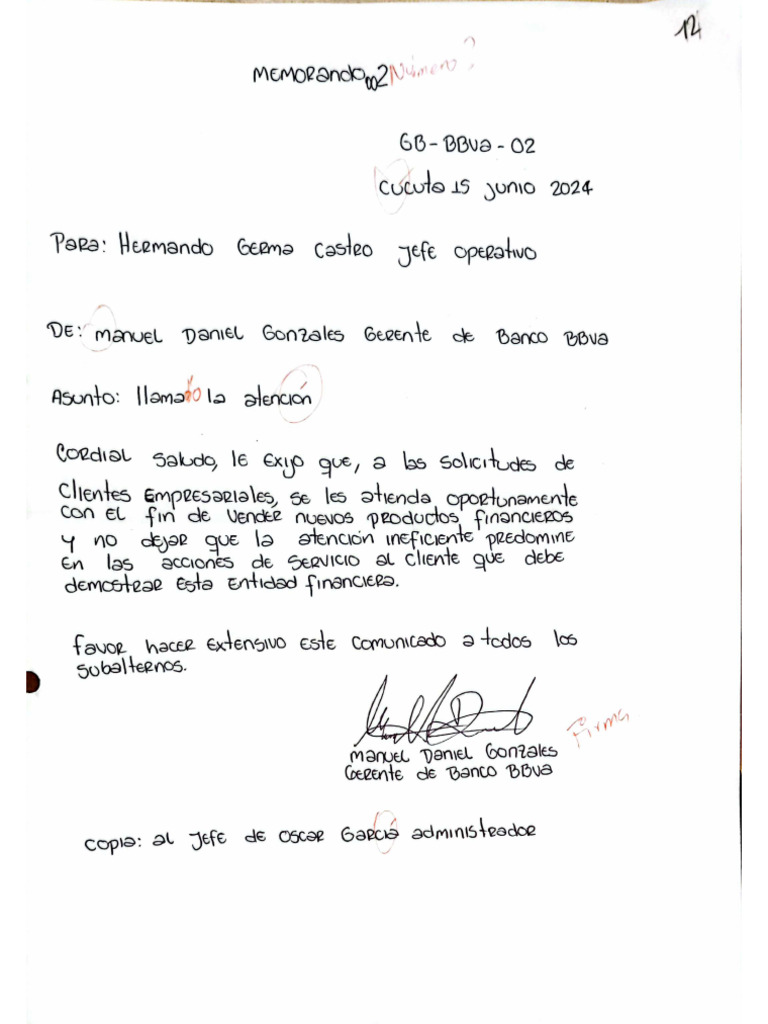 12
MEMORANDO 002 Número?
GB-BBVA-02
Cúcuta 15 Junio 2024
Para: Hermando Germa Castro Jefe Operativo
DE: Manuel Daniel Gonzales Gerente de Banco BBVA
Asunto: llamado la atención
Cordial saludo, le exijo que, a las solicitudes de
Clientes Empresariales, se les atienda oportunamente
con el fin de vender nuevos productos financieros
y no dejar que la atención ineficiente predomine
en las acciones de servicio al cliente que debe
demostrar esta entidad financiera.
Favor hacer extensivo este comunicado a todos los
subalternos.
Firma
Manuel Daniel Gonzales
Gerente de Banco BBVA
Copia: al Jefe de Oscar García administrador